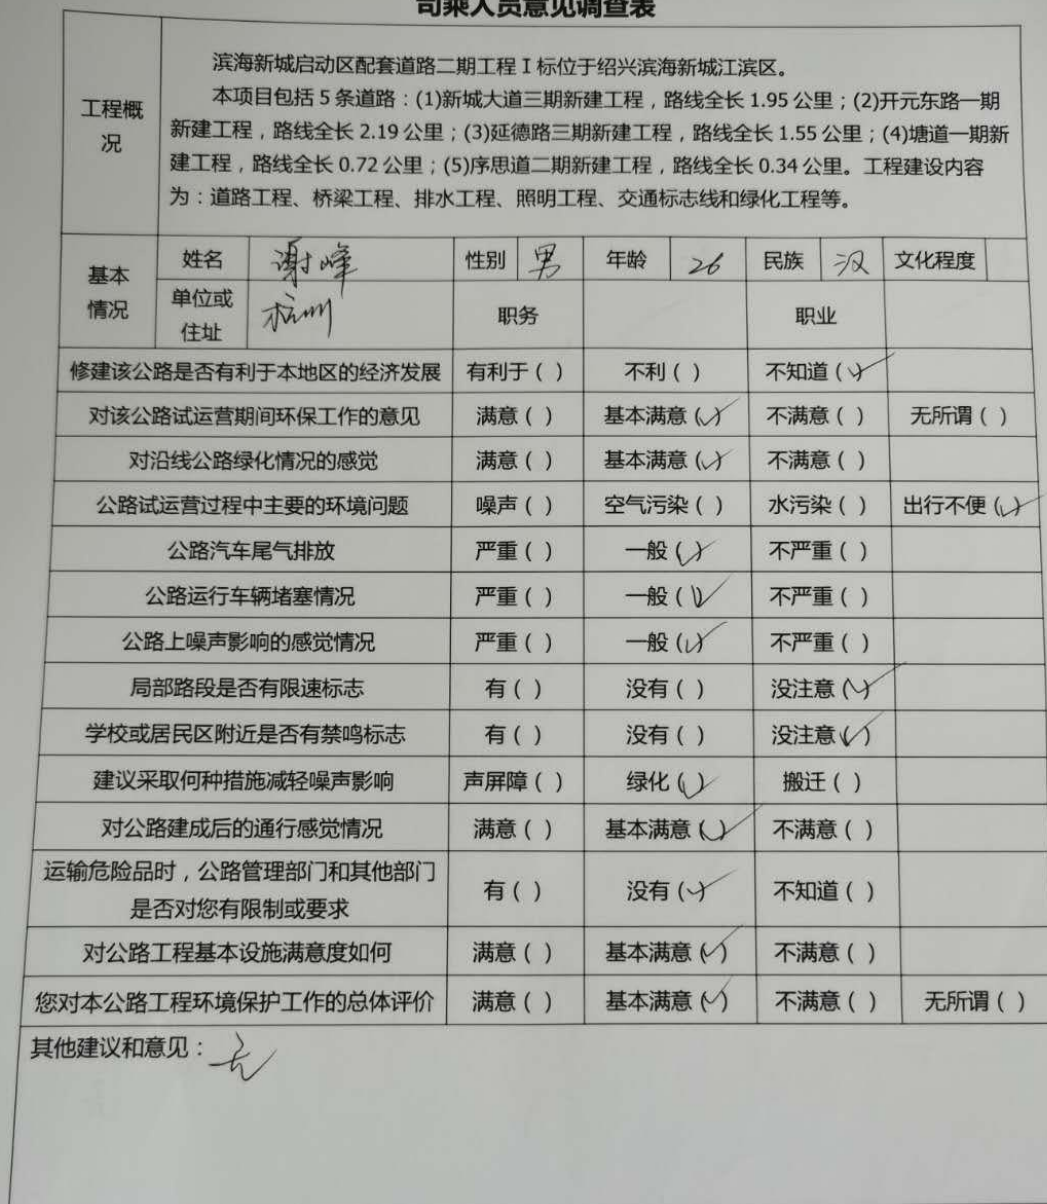 司乘人员意见调查表
滨海新城启动区配套道路二期工程 I 标位于绍兴滨海新城江滨区。
本项目包括 5 条道路：(1)新城大道三期新建工程，路线全长 1.95 公里；(2)开元东路一期
工程概况
新建工程，路线全长 2.19 公里；(3)延德路三期新建工程，路线全长 1.55 公里；(4)塘道一期新
建工程，路线全长 0.72 公里；(5)序思道二期新建工程，路线全长 0.34 公里。工程建设内容
为：道路工程、桥梁工程、排水工程、照明工程、交通标志线和绿化工程等。
基本情况 姓名 谢峰 性别 男 年龄 26 民族 汉 文化程度
单位或住址 杭州 职务 职业
修建该公路是否有利于本地区的经济发展 有利于 ( ) 不利 ( ) 不知道 (✓)
对该公路试运营期间环保工作的意见 满意 ( ) 基本满意 (✓) 不满意 ( ) 无所谓 ( )
对沿线公路绿化情况的感觉 满意 ( ) 基本满意 (✓) 不满意 ( )
公路试运营过程中主要的环境问题 噪声 ( ) 空气污染 ( ) 水污染 ( ) 出行不便 (✓)
公路汽车尾气排放 严重 ( ) 一般 (✓) 不严重 ( )
公路运行车辆堵塞情况 严重 ( ) 一般 (✓) 不严重 ( )
公路上噪声影响的感觉情况 严重 ( ) 一般 (✓) 不严重 ( )
局部路段是否有限速标志 有 ( ) 没有 ( ) 没注意 (✓)
学校或居民区附近是否有禁鸣标志 有 ( ) 没有 ( ) 没注意 (✓)
建议采取何种措施减轻噪声影响 声屏障 ( ) 绿化 (✓) 搬迁 ( )
对公路建成后的通行感觉情况 满意 ( ) 基本满意 (✓) 不满意 ( )
运输危险品时，公路管理部门和其他部门
是否对您有限制或要求 有 ( ) 没有 (✓) 不知道 ( )
对公路工程基本设施满意度如何 满意 ( ) 基本满意 (✓) 不满意 ( )
您对本公路工程环境保护工作的总体评价 满意 ( ) 基本满意 (✓) 不满意 ( ) 无所谓 ( )
其他建议和意见：无